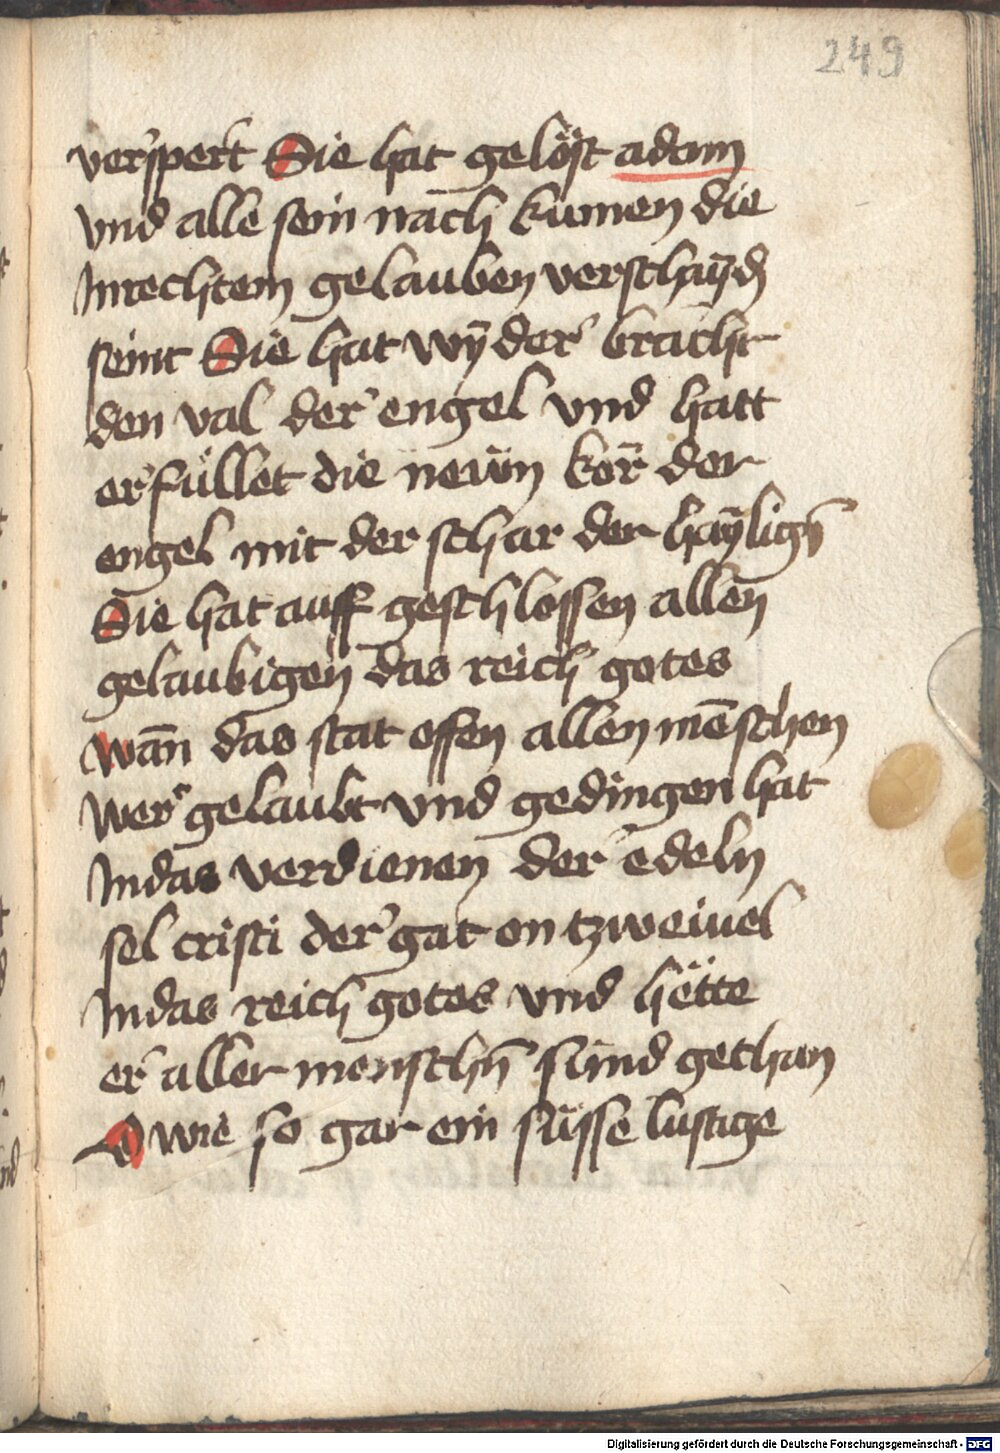 249
verspert Sie hat gelöst adam
vnd alle sein nach kumen die
Inrechtem gelauben verschayd
seint Sie hat wÿder bracht
den val der engel vnd hatt
erfüllet die neün kör der
engel mit der schar der hayligñ
Sie hat auff geschlossen allen
gelaubigen das reich gotes
wān das stat offen allen mēschen
wer gelaubt vnd gedingen hat
Indas verdienen der edeln
sel cristi der gat on tzweiuel
Indas reich gotes vnd hëtte
er aller menschñ sünd gethan
O wie so gar ein süsse lustige
Digitalisierung gefördert durch die Deutsche Forschungsgemeinschaft - DFG